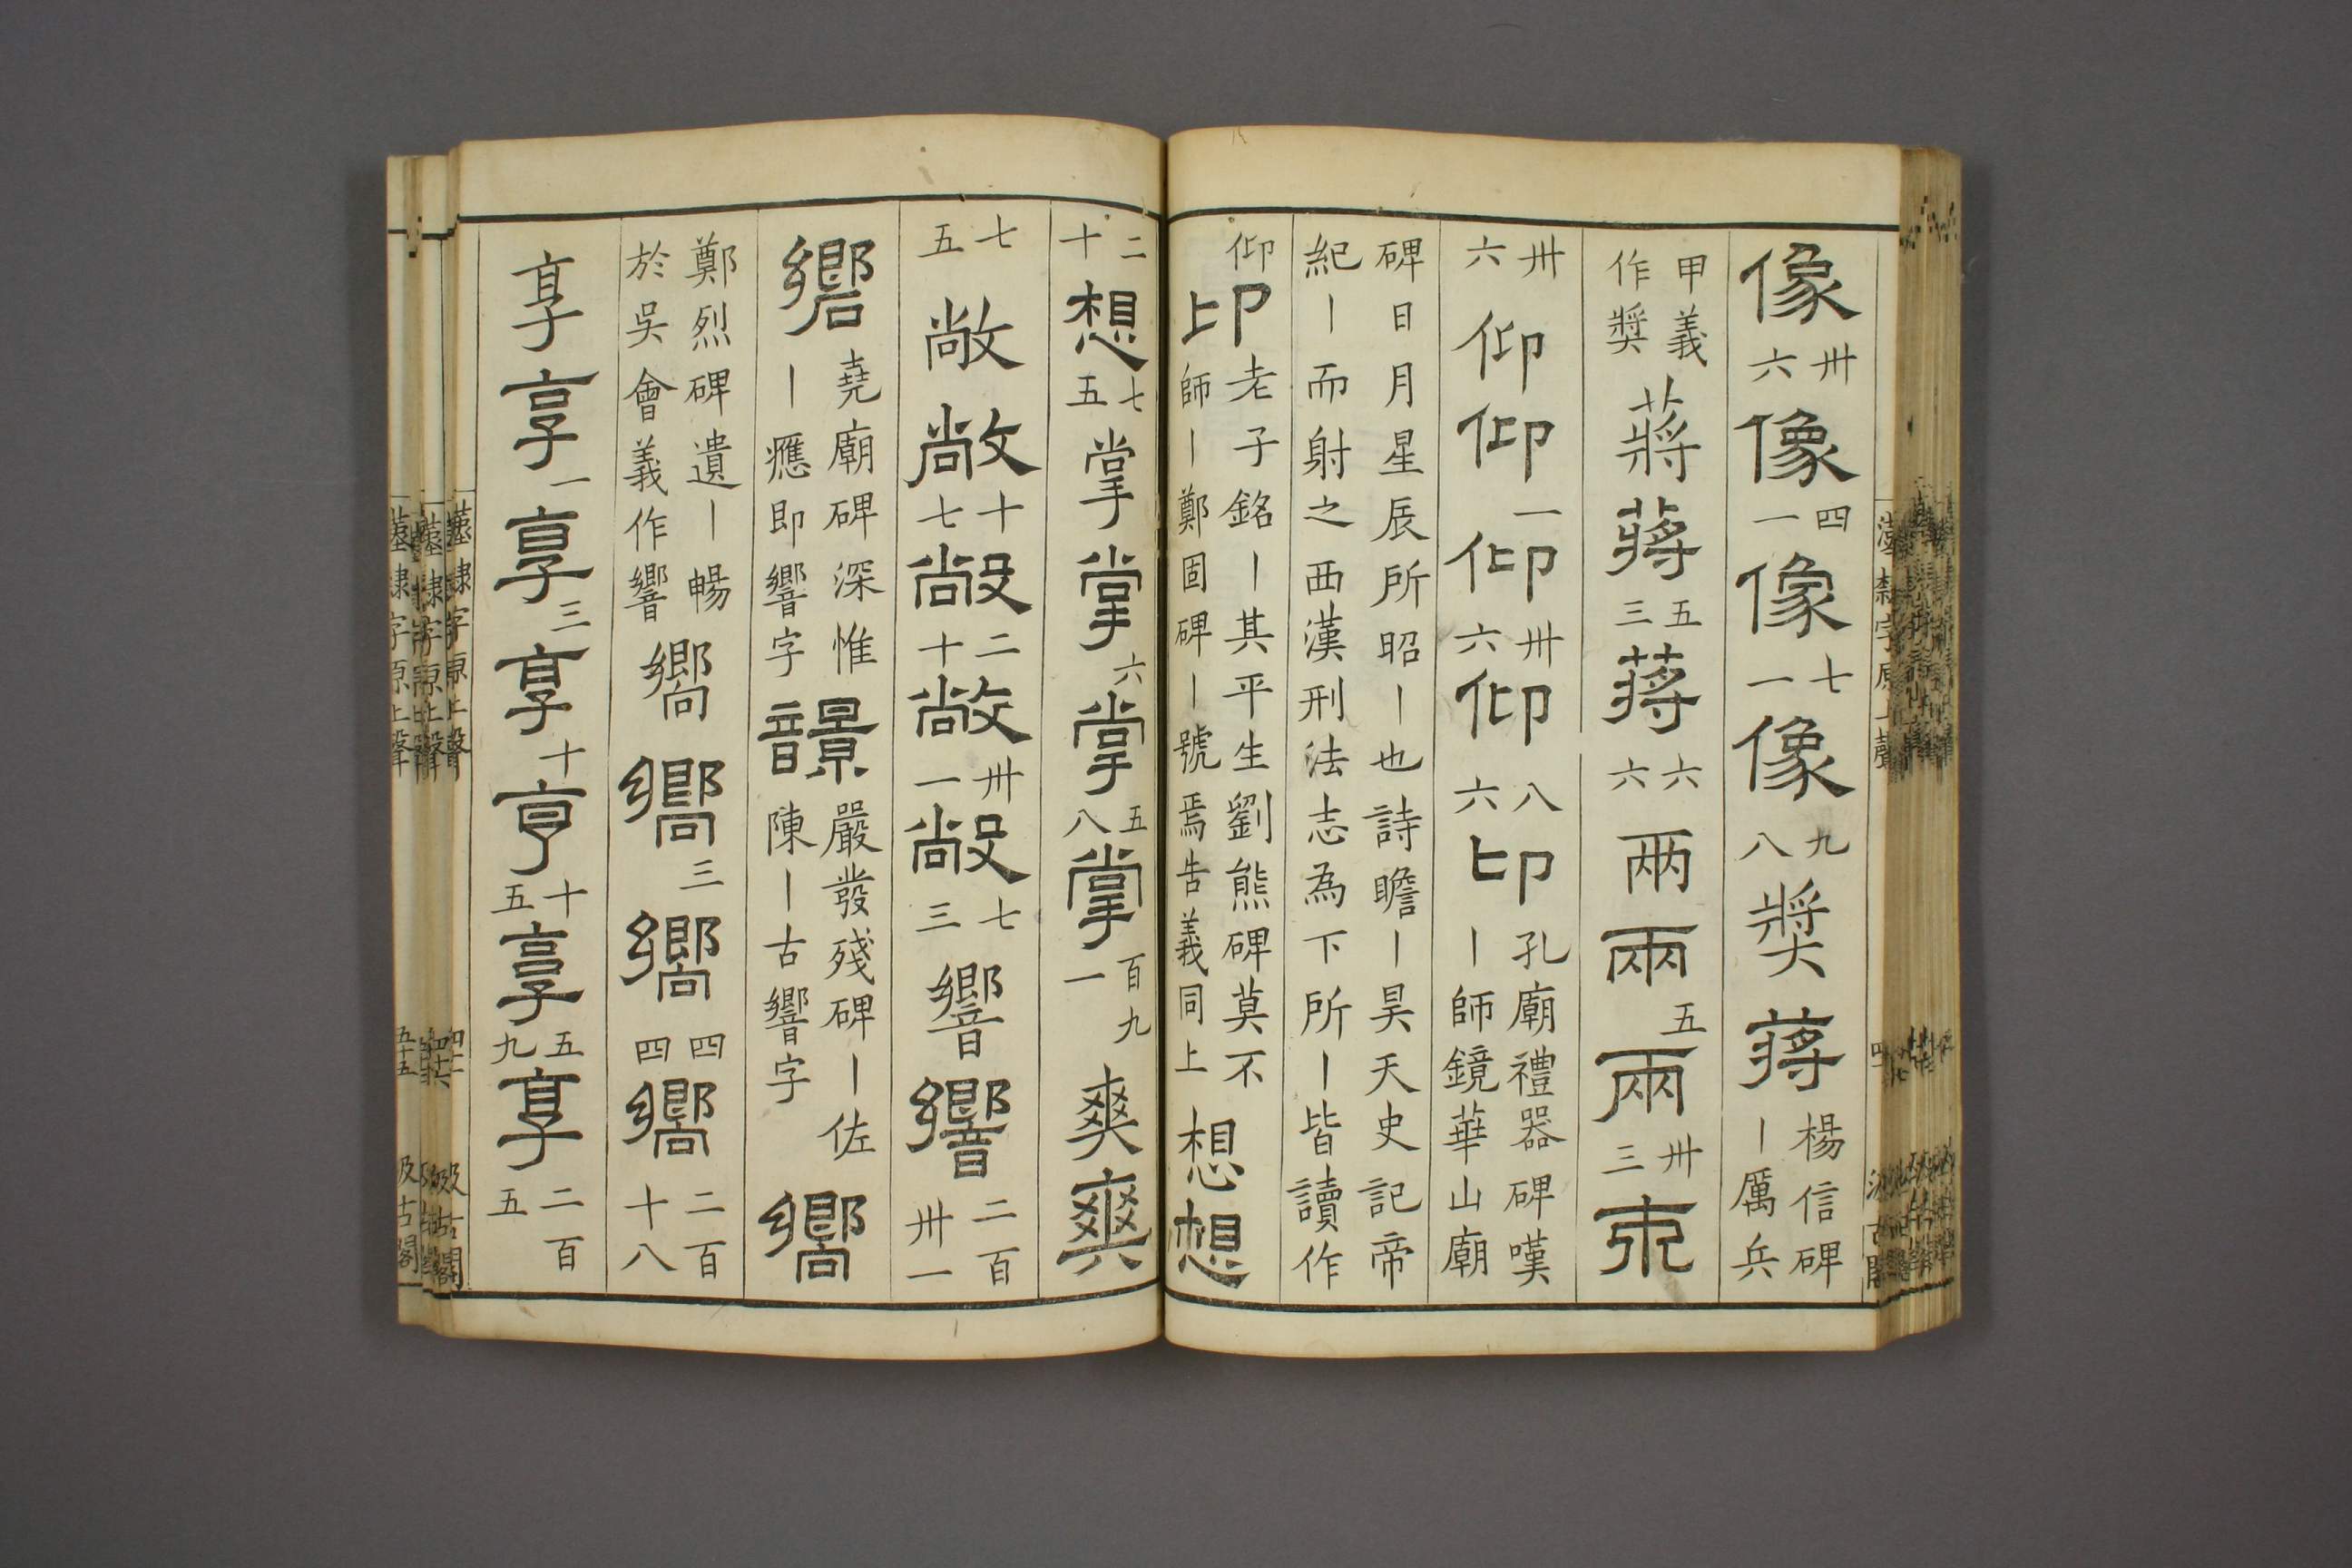 像卅六像四一像七一像九八奬蔣楊信碑丨厲兵
甲義作奬蔣蔣五三蔣六六兩兩五兩卅三兩
卅六仰仰一仰卅六仰八六卬孔廟禮器碑嘆丨師鏡華山廟
碑日月星辰所昭丨也詩瞻丨昊天史記帝紀丨而射之西漢刑法志為下所丨皆讀作
仰卬老子銘丨其平生劉熊碑莫不師丨鄭固碑丨號焉告義同上想想
二十想七五掌掌六掌五八掌百九一爽爽
七五敞敞十七敞二十敞卅一敞七三響響二百卅一
響堯廟碑深惟丨應即響字𩐿嚴發殘碑丨佐陳丨古響字嚮
鄭烈碑遺丨暢於吳會義作響嚮嚮三嚮四四嚮二百十八
享享一享三享十亨十五享五九享二百五
漢隸字原上聲
汲古閣